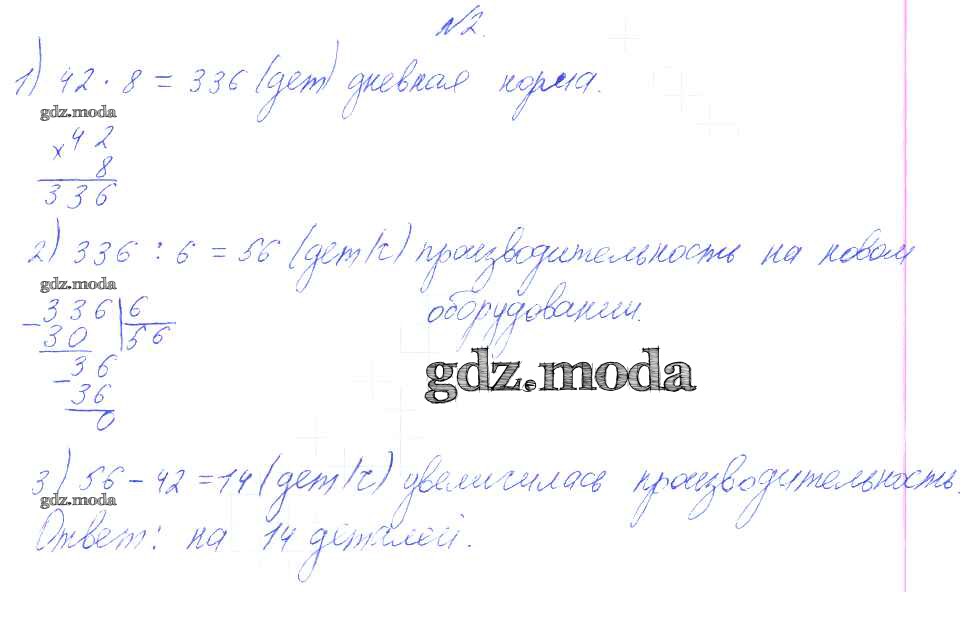 №2.
1) 42 · 8 = 336 (дет) дневная норма.
gdz.moda
× 42
8
336
2) 336 : 6 = 56 (дет/ч) производительность на новом
оборудовании.
gdz.moda
− 336 | 6
30 | 56
− 36
36
0
gdz.moda
3) 56 − 42 = 14 (дет/ч) увеличилась производительность.
gdz.moda
Ответ: на 14 деталей.